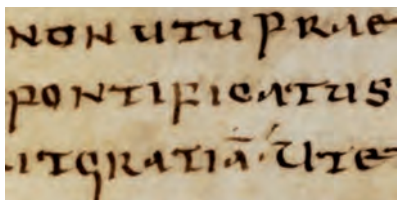 non utu prae
pontificatus
itgratiā·ute